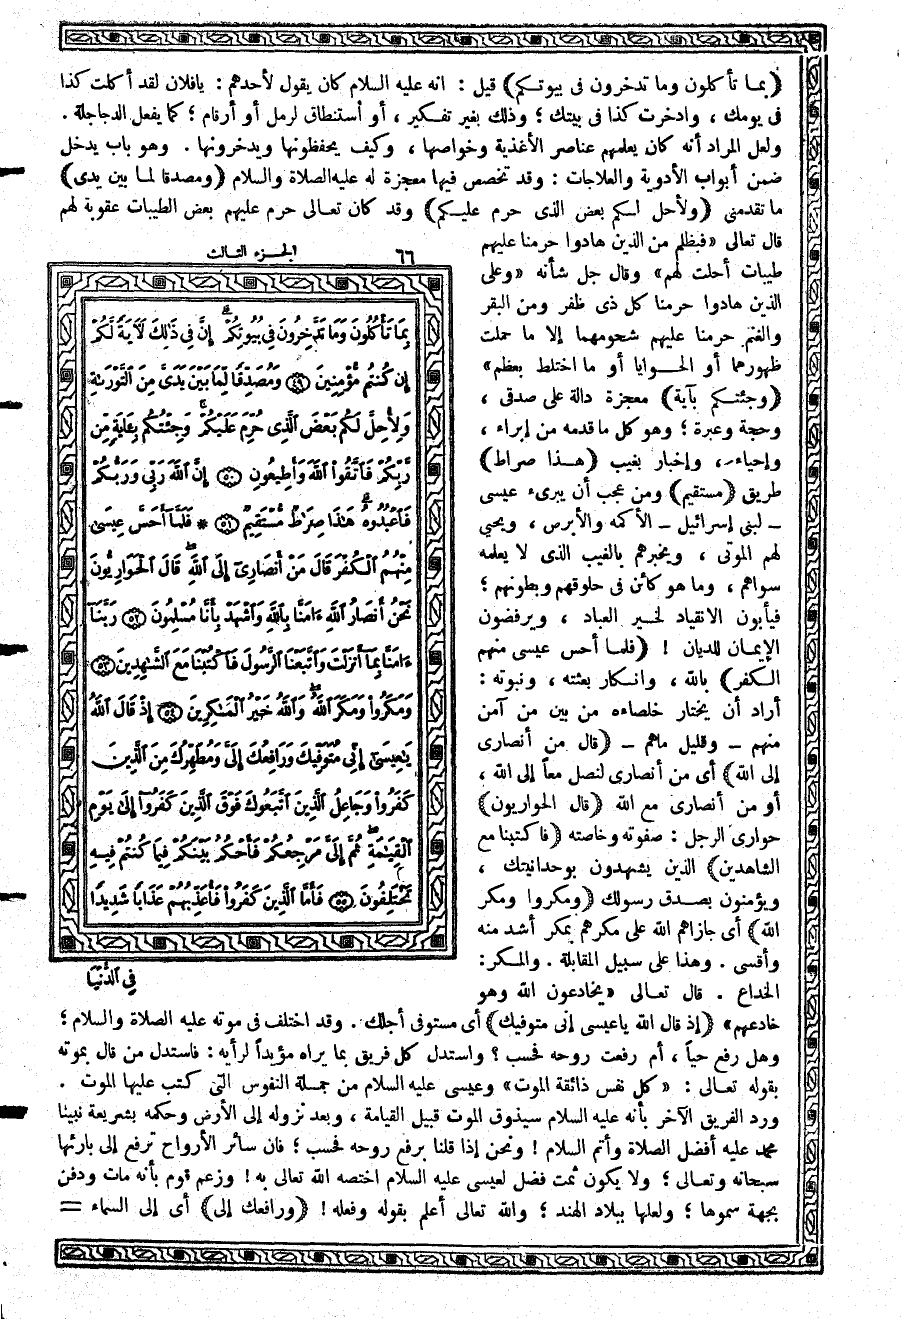 (بما تأكلون وما تدخرون فى بيوتكم) قيل : انه عليه السلام كان يقول لأحدهم : يافلان لقد أكلت كذا
فى يومك ، وادخرت كذا فى بيتك ؛ وذلك بغير تفكير ، أو أستنطاق لرمل أو أرقام ؛ كما يفعل الدجاجلة .
ولعل المراد أنه كان يعلمهم عناصر الأغذية وخواصها ، وكيف يحفظونها ويدخرونها . وهو باب يدخل
ضمن أبواب الأدوية والعلاجات : وقد تخصص فيها معجزة له عليه الصلاة والسلام (ومصدقا لما بين يدى)
ما تقدمنى (ولأحل لكم بعض الذى حرم عليكم) وقد كان تعالى حرم عليهم بعض الطيبات عقوبة لهم
قال تعالى «فبظلم من الذين هادوا حرمنا عليهم
طيبات أحلت لهم» وقال جل شأنه «وعلى
الذين هادوا حرمنا كل ذى ظفر ومن البقر
والغنم حرمنا عليهم شحومهما إلا ما حملت
ظهورهما أو الحوايا أو ما اختلط بعظم»
(وجئتكم بآية) معجزة دالة على صدقى ،
وحجة وعبرة ؛ وهو كل ما قدمه من إبراء ،
وإحياء ، وإخبار بغيب (هذا صراط)
طريق (مستقيم) ومن عجب أن يبرىء عيسى
ـ لبنى إسرائيل ـ الأكمه والأبرص ، ويحيى
لهم الموتى ، ويخبرهم بالغيب الذى لا يعلمه
سواهم ، وما هو كائن فى حلوقهم وبطونهم ؛
فيأبون الانقياد لخير العباد ، ويرفضون
الإيمان للديان ! (فلما أحس عيسى منهم
الكفر) بالله ، وانكار بعثته ، ونبوته :
أراد أن يختار خلصاءه من بين من آمن
منهم ـ وقليل ماهم ـ (قال من أنصارى
إلى الله) أى من أنصارى لنصل معاً إلى الله ،
أو من أنصارى مع الله (قال الحواريون)
حوارى الرجل : صفوته وخاصته (فاكتبنا مع
الشاهدين) الذين يشهدون بوحدانيتك ،
ويؤمنون بصدق رسولك (ومكروا ومكر
الله) أى جازاهم الله على مكرهم بمكر أشد منه
وأقسى . وهذا على سبيل المقابلة . والمكر:
الخداع . قال تعالى «يخادعون الله وهو
خادعهم» (إذ قال الله ياعيسى إنى متوفيك) أى مستوفى أجلك . وقد اختلف فى موته عليه الصلاة والسلام ؛
وهل رفع حياً ، أم رفعت روحه فحسب ؟ واستدل كل فريق بما يراه مؤيداً لرأيه : فاستدل من قال بموته
بقوله تعالى : «كل نفس ذائقة الموت» وعيسى عليه السلام من جملة النفوس التى كتب عليها الموت .
ورد الفريق الآخر بأنه عليه السلام سيذوق الموت قبيل القيامة ، وبعد نزوله إلى الأرض وحكمه بشريعة نبينا
محمد عليه أفضل الصلاة وأتم السلام ! ونحن إذا قلنا برفع روحه فحسب ؛ فان سائر الأرواح ترفع إلى بارئها
سبحانه وتعالى ؛ ولا يكون ثمت فضل لعيسى عليه السلام اختصه الله تعالى به ! وزعم قوم بأنه مات ودفن
بجهة سموها ؛ ولعلها ببلاد الهند ؛ والله تعالى أعلم بقوله وفعله ! (ورافعك إلى) أى إلى السماء =
٦٦ الجزء الثالث
بِمَا تَأْكُلُونَ وَمَا تَدَّخِرُونَ فِي بُيُوتِكُمْ ۚ إِنَّ فِي ذَٰلِكَ لَآيَةً لَّكُمْ
إِن كُنتُم مُّؤْمِنِينَ ﴿٤٩﴾ وَمُصَدِّقًا لِّمَا بَيْنَ يَدَيَّ مِنَ التَّوْرَىٰةِ
وَلِأُحِلَّ لَكُم بَعْضَ الَّذِي حُرِّمَ عَلَيْكُمْ ۚ وَجِئْتُكُم بِـَٔايَةٍ مِّن
رَّبِّكُمْ فَاتَّقُوا اللَّهَ وَأَطِيعُونِ ﴿٥٠﴾ إِنَّ اللَّهَ رَبِّي وَرَبُّكُمْ
فَاعْبُدُوهُ ۗ هَٰذَا صِرَٰطٌ مُّسْتَقِيمٌ ﴿٥١﴾ * فَلَمَّا أَحَسَّ عِيسَىٰ
مِنْهُمُ الْكُفْرَ قَالَ مَنْ أَنصَارِي إِلَى اللَّهِ ۖ قَالَ الْحَوَارِيُّونَ
نَحْنُ أَنصَارُ اللَّهِ ءَامَنَّا بِاللَّهِ وَاشْهَدْ بِأَنَّا مُسْلِمُونَ ﴿٥٢﴾ رَبَّنَا
ءَامَنَّا بِمَا أَنزَلْتَ وَاتَّبَعْنَا الرَّسُولَ فَاكْتُبْنَا مَعَ الشَّٰهِدِينَ ﴿٥٣﴾
وَمَكَرُوا وَمَكَرَ اللَّهُ ۖ وَاللَّهُ خَيْرُ الْمَٰكِرِينَ ﴿٥٤﴾ إِذْ قَالَ اللَّهُ
يَٰعِيسَىٰ إِنِّي مُتَوَفِّيكَ وَرَافِعُكَ إِلَيَّ وَمُطَهِّرُكَ مِنَ الَّذِينَ
كَفَرُوا وَجَاعِلُ الَّذِينَ اتَّبَعُوكَ فَوْقَ الَّذِينَ كَفَرُوا إِلَىٰ يَوْمِ
الْقِيَٰمَةِ ۖ ثُمَّ إِلَيَّ مَرْجِعُكُمْ فَأَحْكُمُ بَيْنَكُمْ فِيمَا كُنتُمْ فِيهِ
تَخْتَلِفُونَ ﴿٥٥﴾ فَأَمَّا الَّذِينَ كَفَرُوا فَأُعَذِّبُهُمْ عَذَابًا شَدِيدًا
فِي الدُّنْيَا